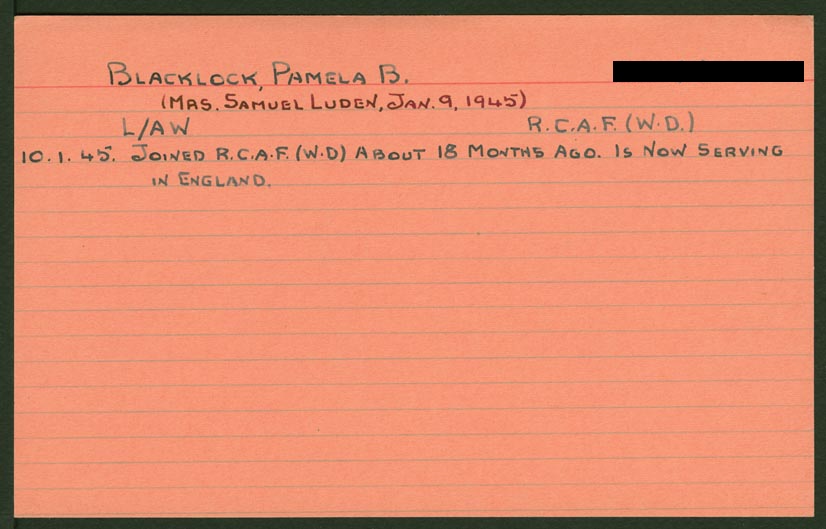 BLACKLOCK, PAMELA B.
(MRS. SAMUEL LUDEN, JAN. 9, 1945)
L/AW R.C.A.F. (W.D.)
10.1.45. JOINED R.C.A.F. (W.D) ABOUT 18 MONTHS AGO. IS NOW SERVING
IN ENGLAND.